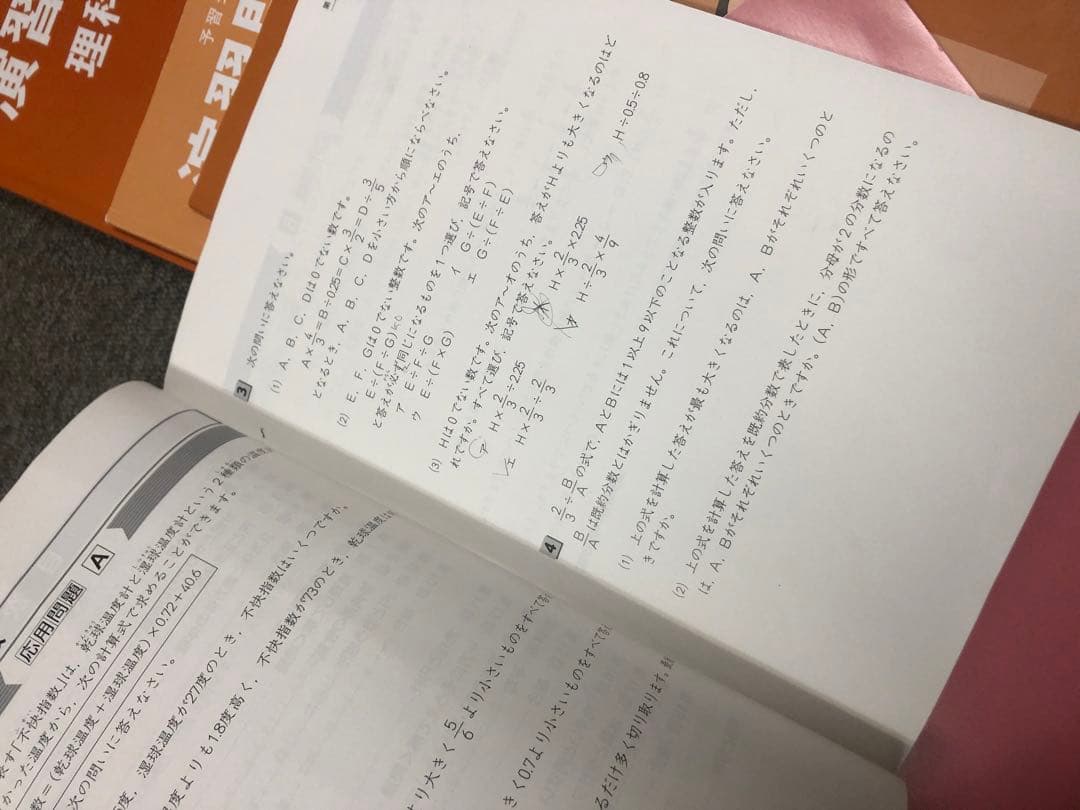 演習
理科
予習
演習問
3 次の問いに答えなさい。
(1) A、B、C、Dは0でない数です。
A×4/3=B÷0.25=C×3/2=D÷3/5
となるとき、A、B、C、Dを小さい方から順にならべなさい。
(2) E、F、Gは0でない整数です。次のア～エのうち、
E÷(F÷G)
と答えが必ず同じになるものを1つ選び、記号で答えなさい。
ア E÷F÷G イ G÷(E÷F)
ウ E÷(F×G) エ G÷(F÷E)
(3) Hは0でない数です。次のア～オのうち、答えがHよりも大きくなるのはど
れですか。すべて選び、記号で答えなさい。
ア H×2/3÷2.25 イ H×2/3×2.25 ウ H÷0.5÷0.8
エ H×2/3÷2/3 オ H÷2/3×4/9
4 2/3÷B/Aの式で、AとBには1以上9以下のことなる整数が入ります。ただし、
B/Aは既約分数とはかぎりません。これについて、次の問いに答えなさい。
(1) 上の式を計算した答えが最も大きくなるのは、A、Bがそれぞれいくつのと
きですか。
(2) 上の式を計算した答えを既約分数で表したときに、分母が2の分数になるの
は、A、Bがそれぞれいくつのときですか。(A、B)の形ですべて答えなさい。
応用問題 A
表す「不快指数」は、乾球温度計と湿球温度計という2種類の温度
かった温度から、次の計算式で求めることができます。
数=(乾球温度+湿球温度)×0.72+40.6
次の問いに答えなさい。
度、湿球温度が27度のとき、不快指数はいくつですか。
度よりも1.8度高く、不快指数が73のとき、乾球温度は
より大きく5/6より小さいものをすべて
きく0.7より小さいものをすべて
るだけ多く切り取ります。